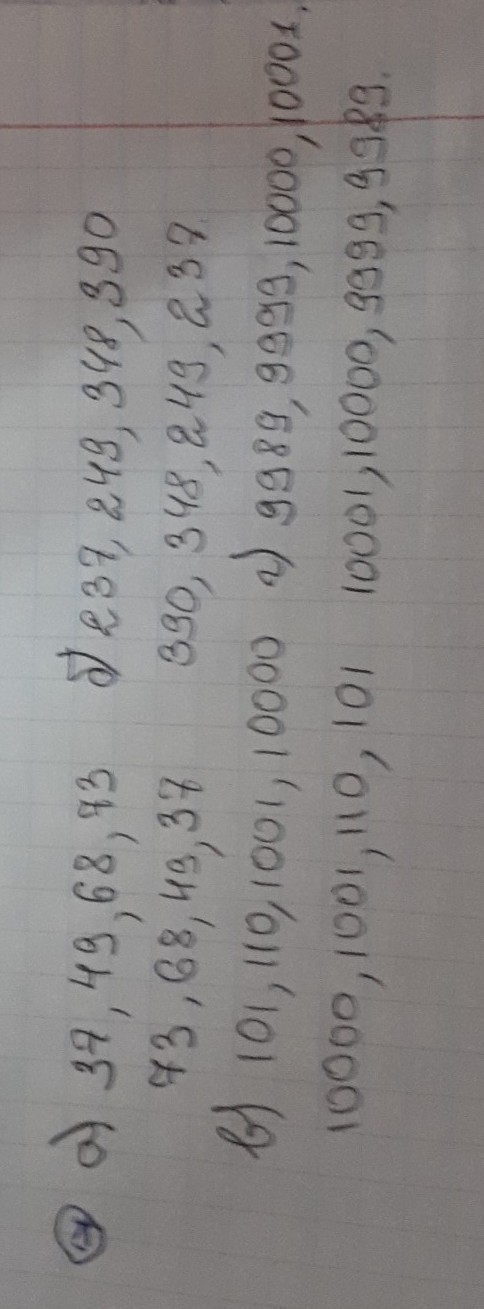 а) 37, 49, 68, 73 б) 237, 249, 348, 390
73, 68, 49, 37 390, 348, 249, 237.
в) 101, 110, 1001, 10000 г) 9989, 9999, 10000, 10001.
10000, 1001, 110, 101 10001, 10000, 9999, 9989.